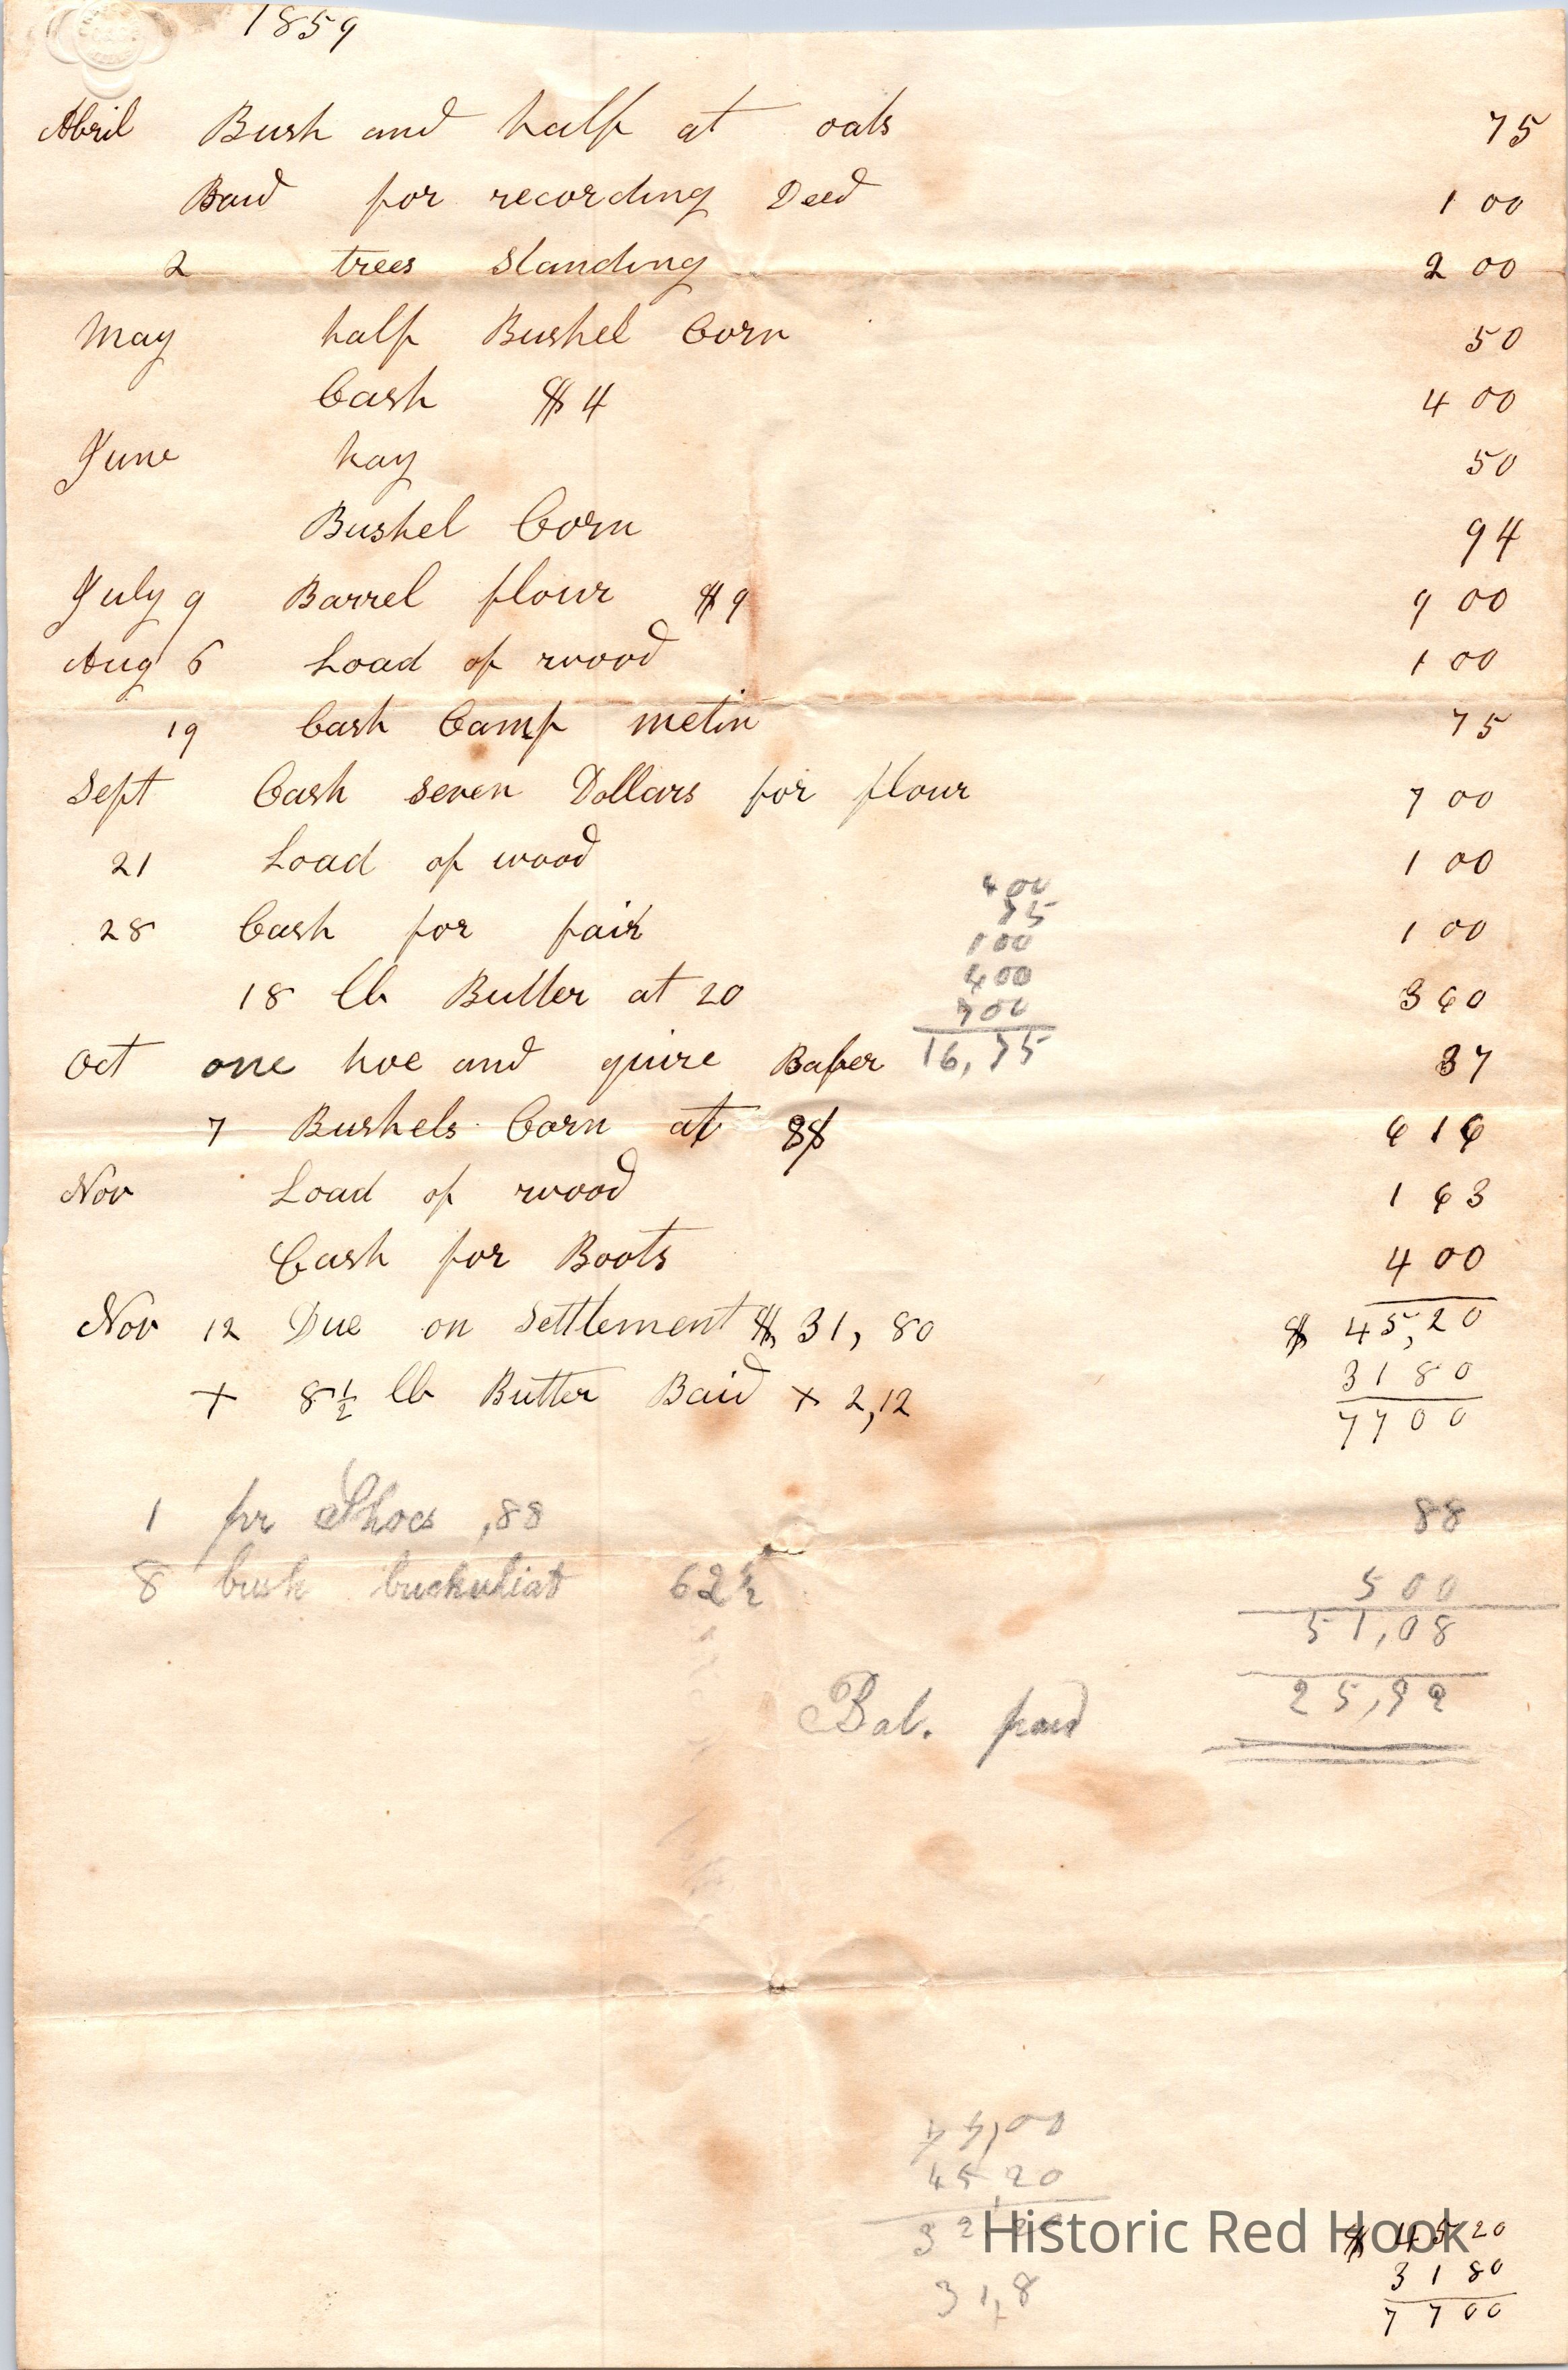 1859
Abril Bush and half at oats 75
Baid for recording Deed 1 00
2 trees standing 2 00
May half Bushel Corn 50
Cash $4 4 00
June hay 50
Bushel Corn 94
July 9 Barrel flour $9 9 00
Aug 6 Load of wood 1 00
19 Cash Camp metin 75
Sept Cash seven Dollars for flour 7 00
21 Load of wood 1 00
400
75
28 Cash for fair 1 00
100
400
18 lb Butter at 20 3 60
700
16,75
Oct one hoe and quire Baber 37
7 Bushels Corn at 88 6 16
Nov Load of wood 1 63
Cash for Boots 4 00
Nov 12 Due on Settlement $ 31, 80 $ 45,20
31 80
+ 8½ lb Butter Baid + 2,12
77 00
1 pr Shoes ,88 88
8 bush buckwheat 62½ 5 00
51,08
Bal. paid 25,92
77,00
45,20
Historic Red Hook
$ 45 20
31 80
31,8
77 00